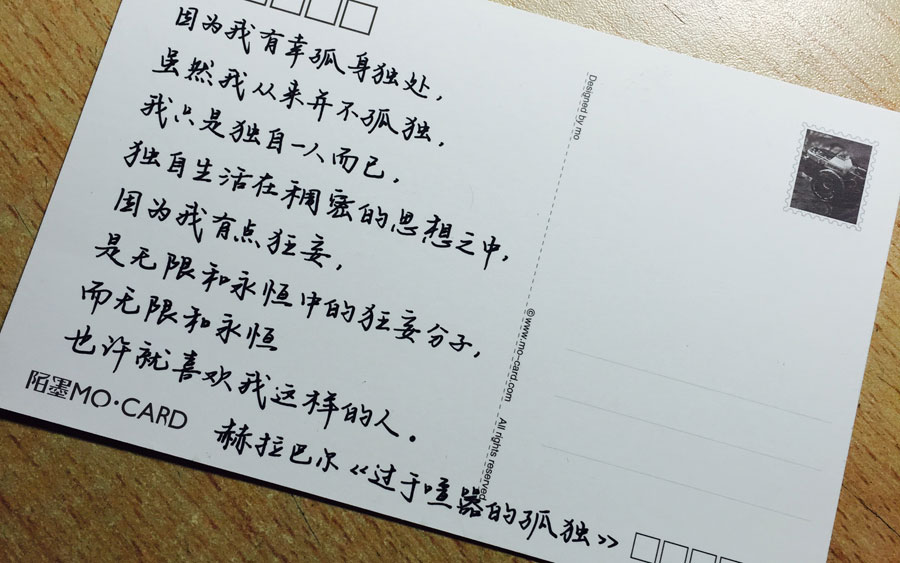 因为我有幸孤身独处，
虽然我从来并不孤独，
我只是独自一人而已，
独自生活在稠密的思想之中，
因为我有点狂妄，
是无限和永恒中的狂妄分子，
而无限和永恒
也许就喜欢我这样的人。
赫拉巴尔《过于喧嚣的孤独》
陌墨MO·CARD
Designed by mo
©www.mo-card.com
All rights reserved